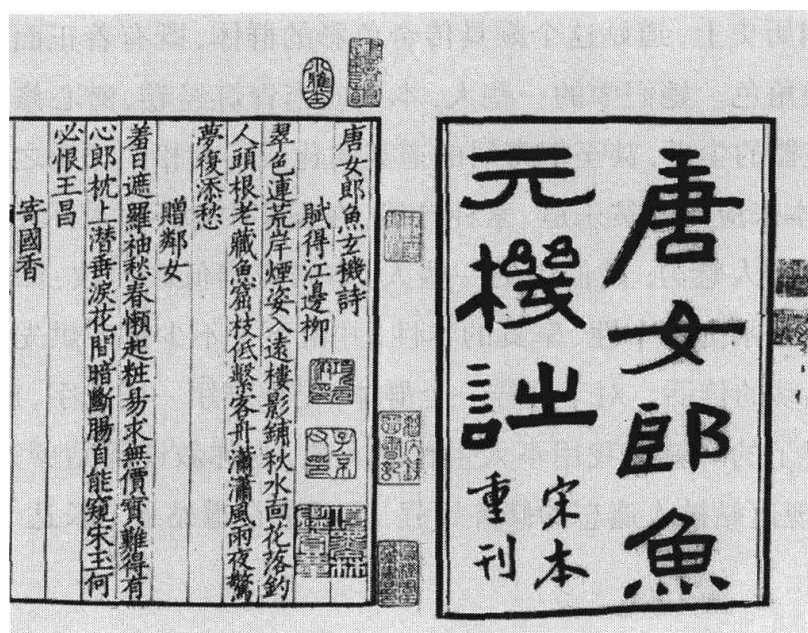 唐女郎魚
元機詩
宋本
重刊
唐女郎魚玄機詩
賦得江邊柳
翠色連荒岸煙姿入遠樓影鋪秋水面花落釣
人頭根老藏魚窟枝低繫客舟瀟瀟風雨夜驚
夢復添愁
贈鄰女
羞日遮羅袖愁春懶起粧易求無價寶難得有
心郎枕上潜垂淚花間暗斷腸自能窺宋玉何
必恨王昌
寄國香